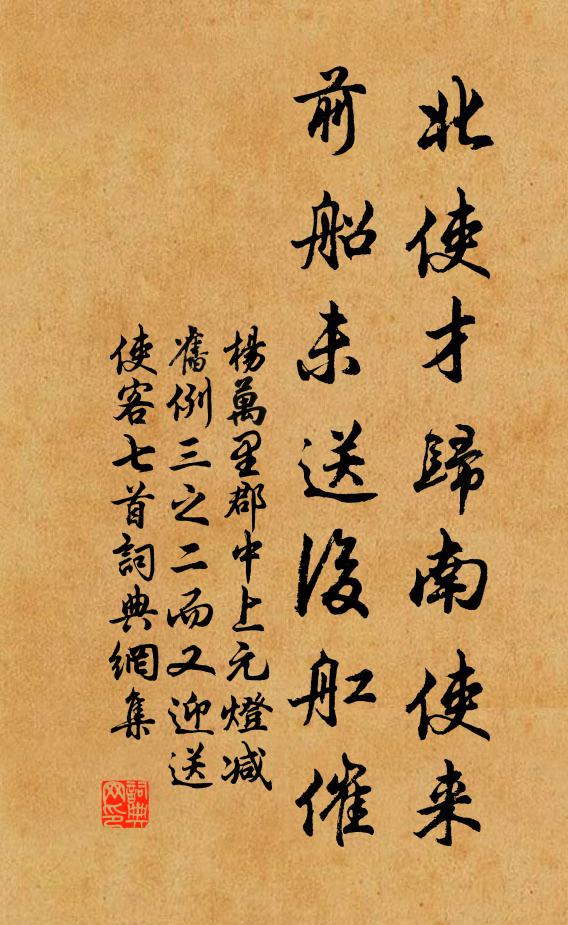 北使才歸南使来
前船未送後舡催
楊萬里郡中上元燈减
舊例三之二而又迎送
使客七首詞典網集
詞典
网印